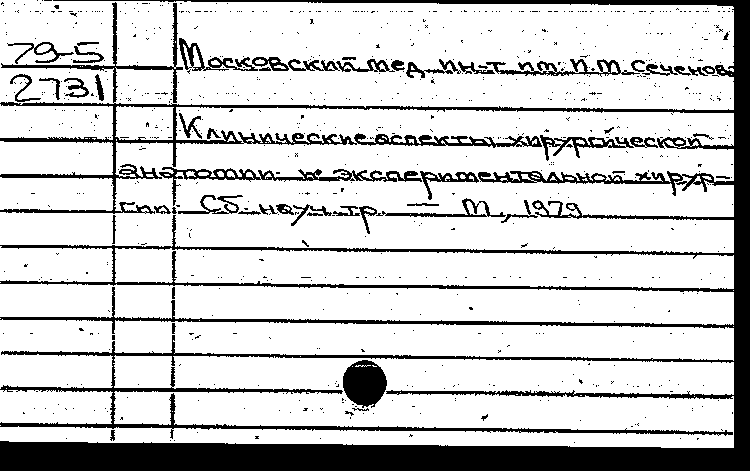 79-5
Московский мед. ин-т им. И.М. Сеченова
2731
Клинические аспекты хирургической
анатомии и экспериментальной хирур-
гии: Сб. науч. тр. — М., 1979